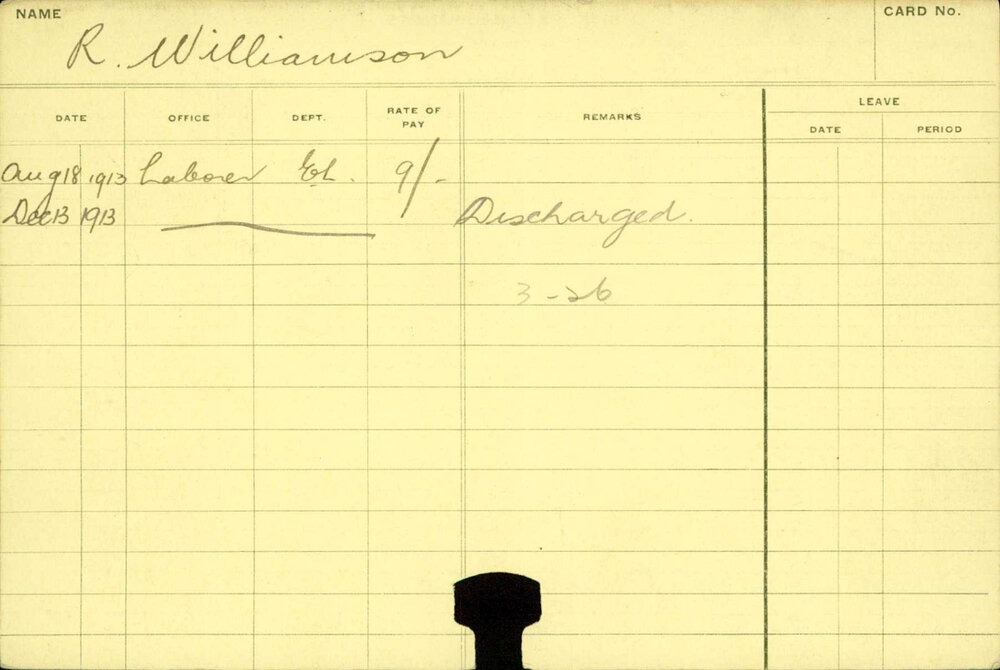 NAME
CARD No.
R. Williamson
DATE OFFICE DEPT. RATE OF PAY REMARKS LEAVE
DATE PERIOD
Aug 18 1913 Laborer EL. 9/-
Dec 13 1913 Discharged.
3-26